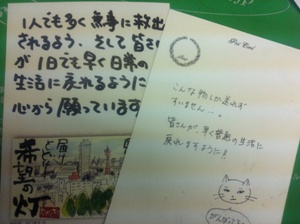 1人でも多く無事に救出
されるよう、そして皆さん
が1日でも早く日常の
生活に戻れるように
心から願っています
届け
とどけ
希望の
灯
Post Card
こんな物しか送れず
すいません…。
皆さんが、早く普通の生活に
戻れますように!
がんばって